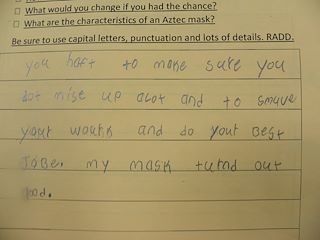 □ What would you change if you had the chance?
□ What are the characteristics of an Aztec mask?
Be sure to use capital letters, punctuation and lots of details. RADD.
you haft to moke sure you
dot mise up alot and to smuve
yout wourk and do yout best
Jobe. my mask turnd out